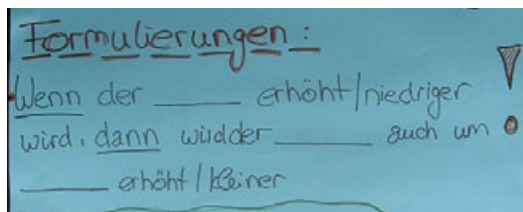 Formulierungen:
Wenn der ______ erhöht/niedriger
wird, dann würdder ______ auch um
______ erhöht/kleiner